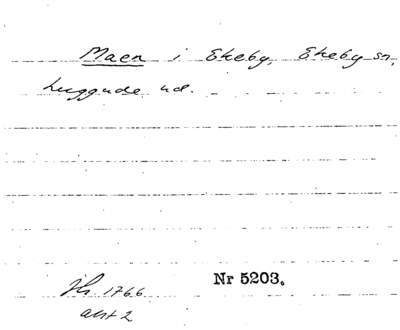 Maen i Ekeby, Ekeby sn,
Luggude hd.
Nr 5203.
1766
akt 2